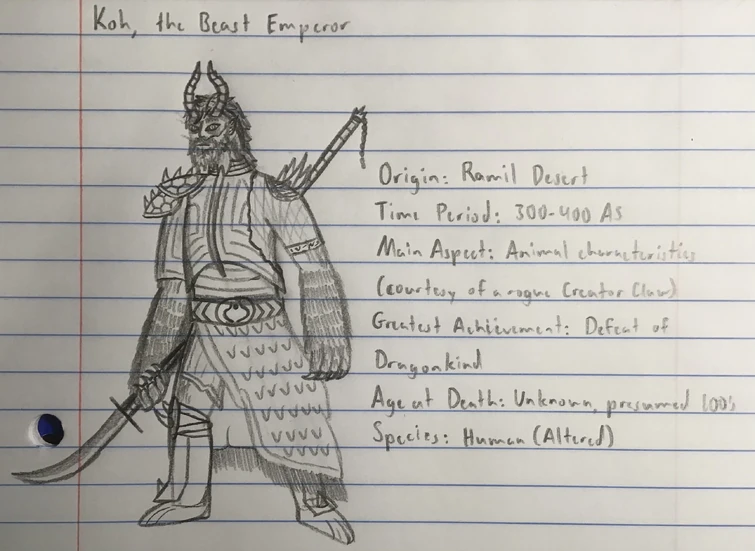 Koh, the Beast Emperor
Origin: Ramil Desert
Time Period: 300-400 AS
Main Aspect: Animal characteristics
(courtesy of a rogue Creator Claw)
Greatest Achievement: Defeat of
Dragonkind
Age at Death: Unknown, presumed 100's
Species: Human (Altered)